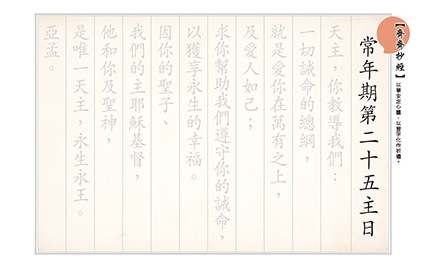 【齊齊抄經】
以筆安定心靈，以習字化作祈禱。
常年期第二十五主日
天主，你教導我們：
一切誡命的總綱，
就是愛你在萬有之上，
及愛人如己；
求你幫助我們遵守你的誡命，
以獲享永生的幸福。
因你的聖子、
我們的主耶穌基督，
他和你及聖神，
是唯一天主，永生永王。
亞孟。